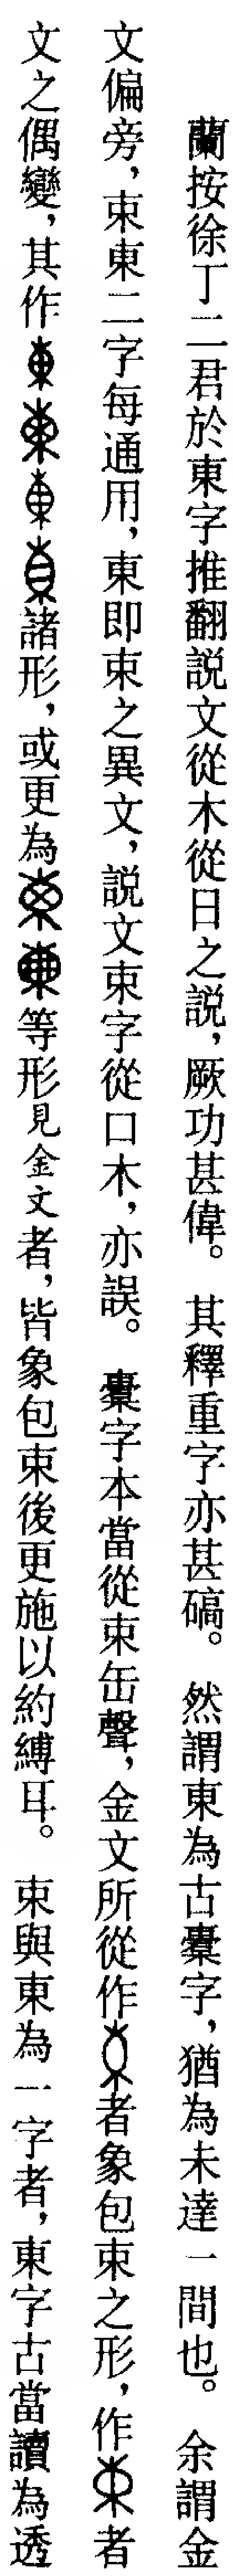 蘭按徐丁二君於東字推翻説文從木從日之説，厥功甚偉。其釋重字亦甚碻。然謂東為古橐字，猶為未達一間也。余謂金
文偏旁，束東二字每通用，東即束之異文，説文束字從口木，亦誤。橐字本當從束缶聲，金文所從作者象包束之形，作者
文之偶變，其作諸形，或更為等形見金文者，皆象包束後更施以約縛耳。束與東為一字者，東字古當讀為透